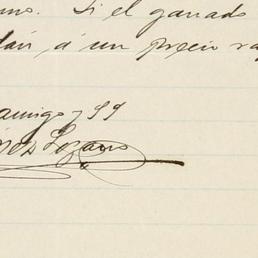 mo. Si el ganado
dán, á un precio ra
amigo y SS
Lozano